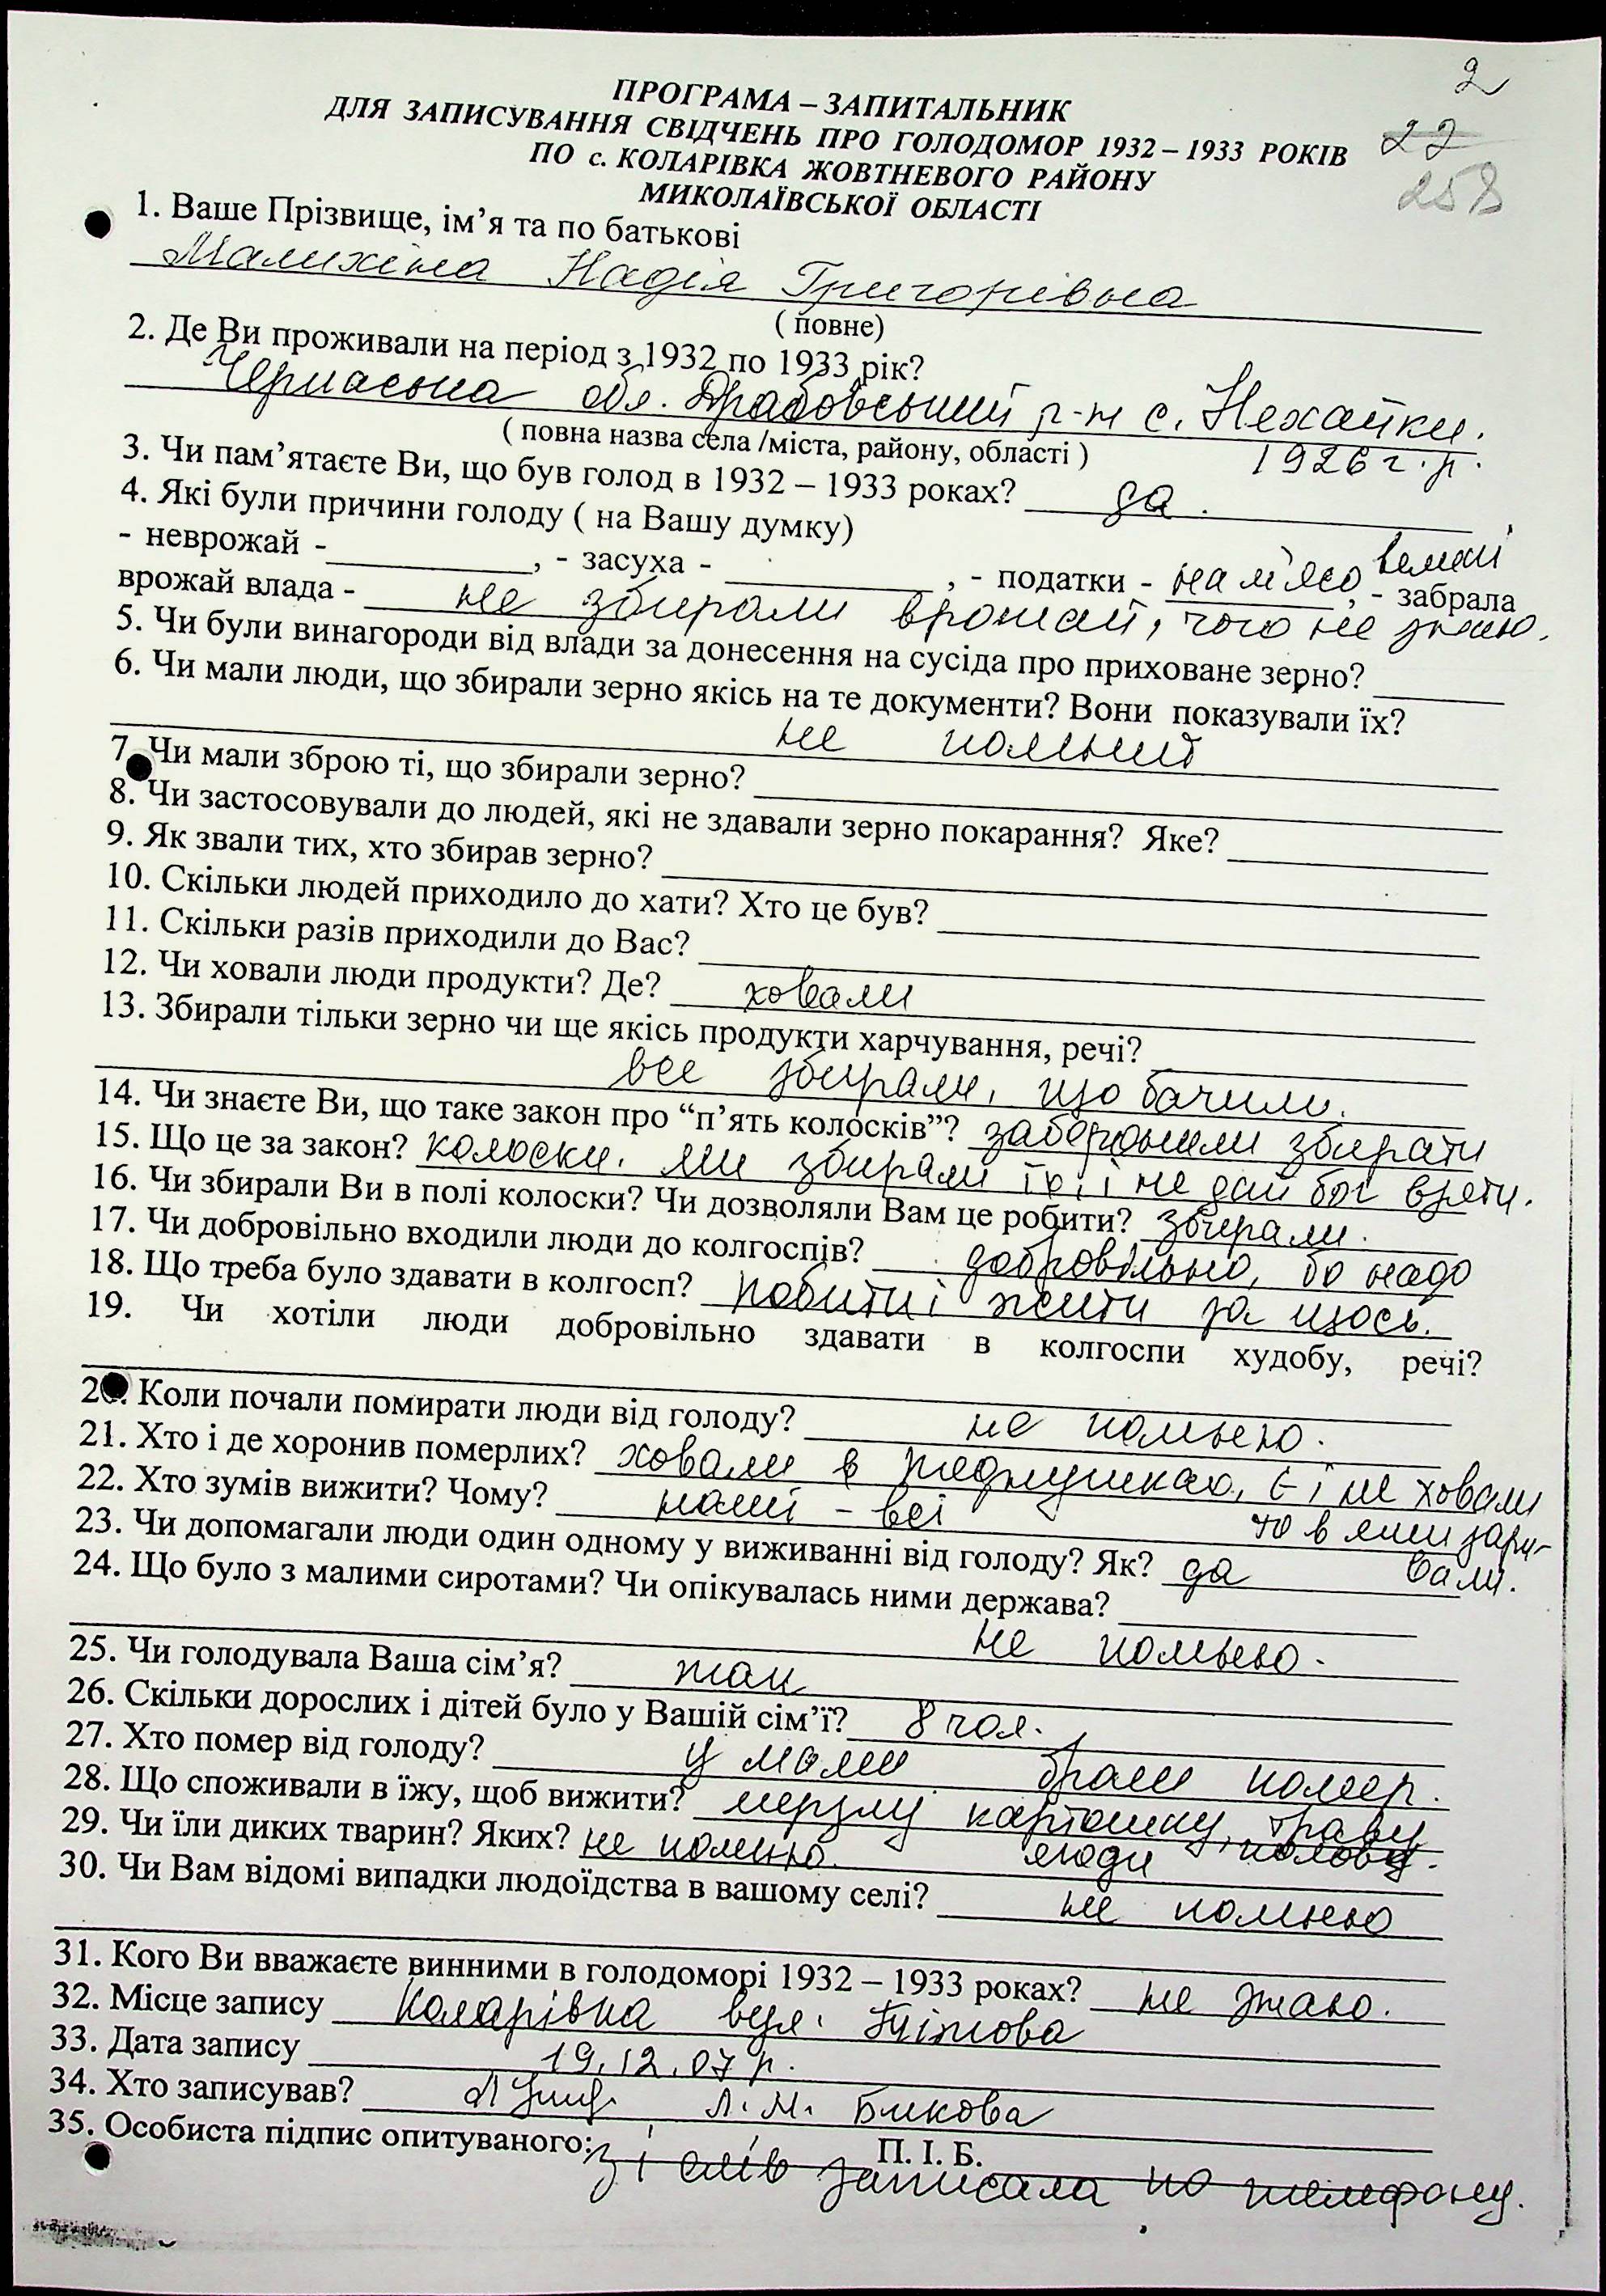 2
ПРОГРАМА – ЗАПИТАЛЬНИК
ДЛЯ ЗАПИСУВАННЯ СВІДЧЕНЬ ПРО ГОЛОДОМОР 1932 – 1933 РОКІВ
22
ПО с. КОЛАРІВКА ЖОВТНЕВОГО РАЙОНУ
258
МИКОЛАЇВСЬКОЇ ОБЛАСТІ
1. Ваше Прізвище, ім’я та по батькові
Малихіна Надія Григорівна
( повне)
2. Де Ви проживали на період з 1932 по 1933 рік?
Черкаська обл. Драбовський р-н с. Нехайки.
( повна назва села /міста, району, області )
1926 г.р.
3. Чи пам’ятаєте Ви, що був голод в 1932 – 1933 роках? да.
4. Які були причини голоду ( на Вашу думку)
- неврожай - , - засуха - , - податки - на м'ясо великі, - забрала
врожай влада - не збирали врожай, чого не знаю.
5. Чи були винагороди від влади за донесення на сусіда про приховане зерно?
6. Чи мали люди, що збирали зерно якісь на те документи? Вони показували їх?
не
7. Чи мали зброю ті, що збирали зерно?
8. Чи застосовували до людей, які не здавали зерно покарання? Яке?
9. Як звали тих, хто збирав зерно?
10. Скільки людей приходило до хати? Хто це був?
11. Скільки разів приходили до Вас?
12. Чи ховали люди продукти? Де? ховали
13. Збирали тільки зерно чи ще якісь продукти харчування, речі?
все збирали, що бачили.
14. Чи знаєте Ви, що таке закон про “п’ять колосків”? забороняли збирати
15. Що це за закон? колоски. ми збирали їх і не дай бог взяти.
16. Чи збирали Ви в полі колоски? Чи дозволяли Вам це робити? збирали.
17. Чи добровільно входили люди до колгоспів? добровільно, бо надо
18. Що треба було здавати в колгосп? робити і жити за щось.
19. Чи хотіли люди добровільно здавати в колгоспи худобу, речі?
20. Коли почали помирати люди від голоду? не помню.
21. Хто і де хоронив померлих? ховали в є і не ховали
22. Хто зумів вижити? Чому? наші - всі
то в ями зари-
23. Чи допомагали люди один одному у виживанні від голоду? Як? да
вали.
24. Що було з малими сиротами? Чи опікувалась ними держава?
не помню.
25. Чи голодувала Ваша сім’я? так
26. Скільки дорослих і дітей було у Вашій сім’ї? 8 чол.
27. Хто помер від голоду? у мами помер.
28. Що споживали в їжу, щоб вижити? мерзлу картошку, траву,
29. Чи їли диких тварин? Яких? не помню. ягоди полову.
30. Чи Вам відомі випадки людоїдства в вашому селі?
не помню
31. Кого Ви вважаєте винними в голодоморі 1932 – 1933 роках? не знаю.
32. Місце запису Коларівка вул.
33. Дата запису 19.12.07 р.
34. Хто записував? Л.М. Бикова
35. Особиста підпис опитуваного: П. І. Б.
зі слів записала по телефону.